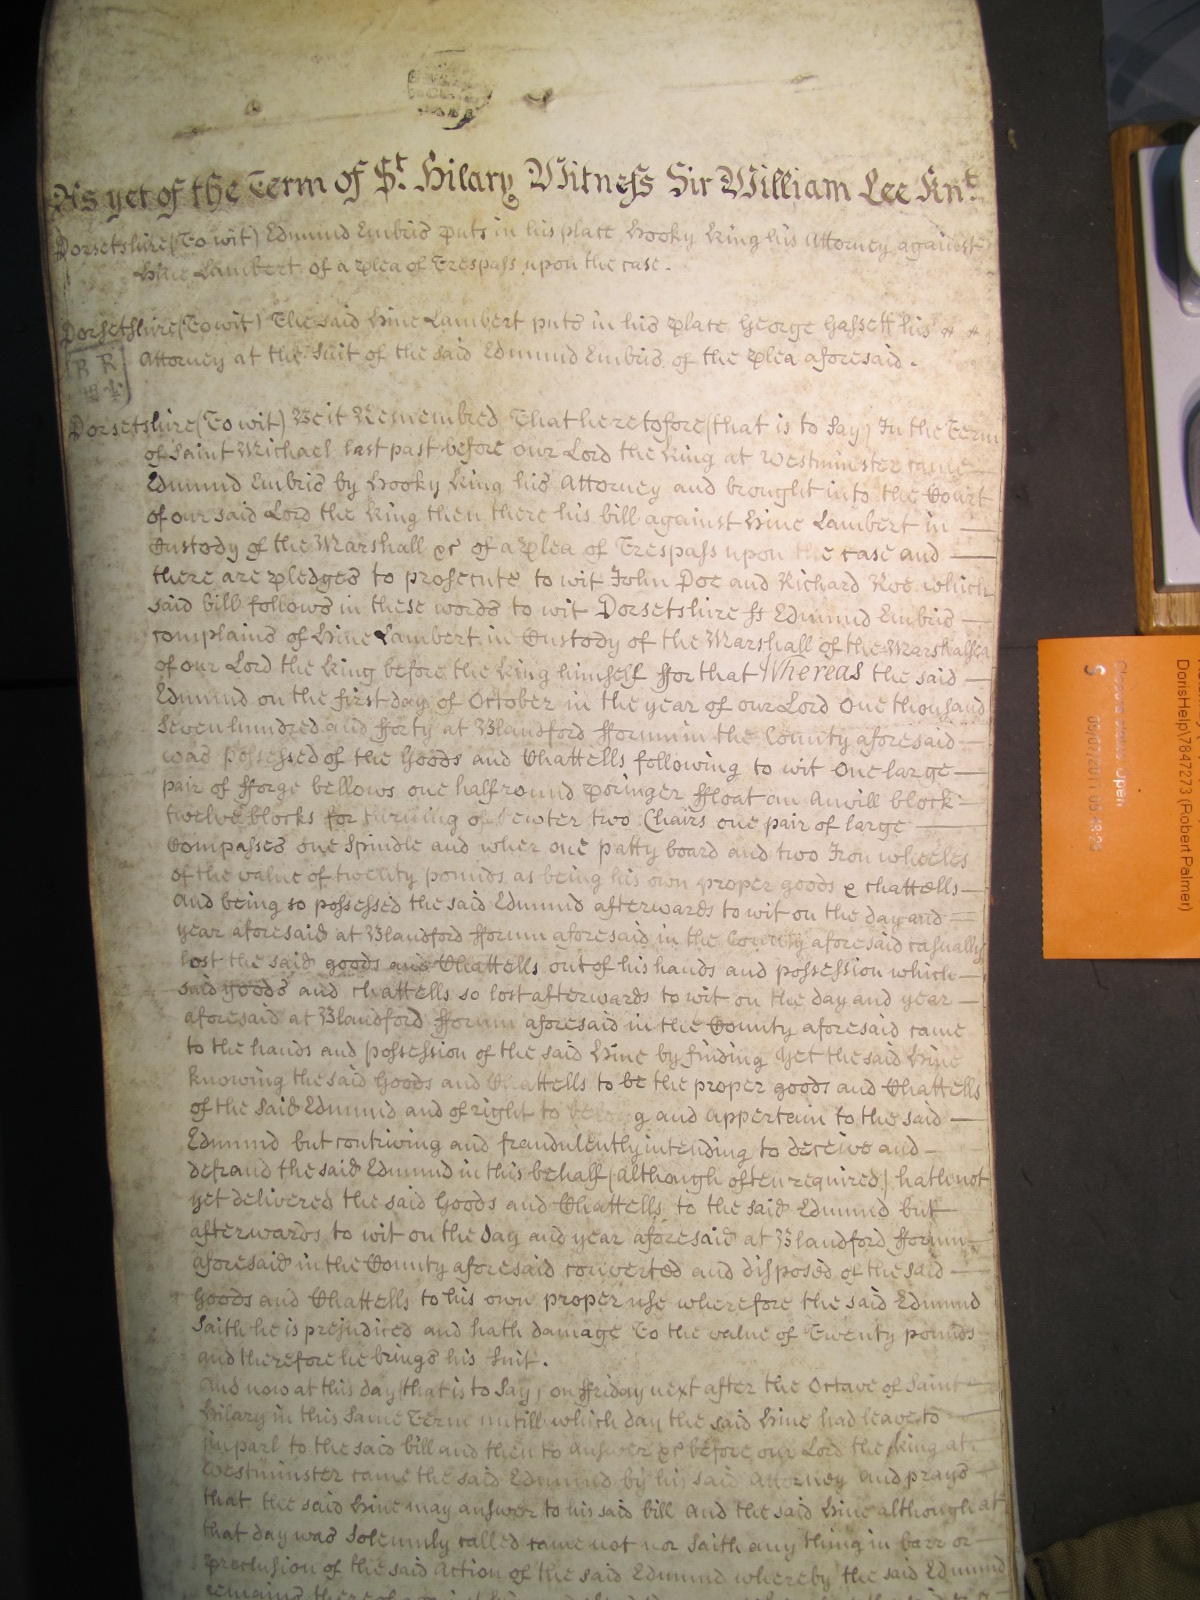 As yet of the Term of St. Hilary Witness Sir William Lee Knt.
Dorsetshire (To wit) Edmund Embris puts in his place Hooky King his Attorney against
Hine Lambert of a Plea of Trespass upon the case.
Dorsetshire (To wit) The said Hine Lambert puts in his Place George Gassett his
Attorney at the Suit of the said Edmund Embris of the Plea aforesaid.
Dorsetshire (To wit) Be it Remembred That heretofore (that is to Say) In the Term
of Saint Michael last past before our Lord the King at Westminster came
Edmund Embris by Hooky King his Attorney and brought into the Court
of our said Lord the King then there his bill against Hine Lambert in
Custody of the Marshall &c of a Plea of Trespass upon the case and
there are Pledges to prosecute to wit John Doe and Richard Roe which
said bill follows in these words to wit Dorsetshire ss Edmund Embris
complains of Hine Lambert in Custody of the Marshall of the Marshalsea
of our Lord the King before the King himself ffor that Whereas the said
Edmund on the first day of October in the year of our Lord One thousand
Seven hundred and fforty at Blandford fforum in the County aforesaid
was possessed of the Goods and Chattells following to wit One large
pair of fforge bellows one half round poringer ffloat an Anvill block
twelve blocks for turning of Pewter two Chairs one pair of large
Compasses one Spindle and wher one patty board and two Iron wheeles
of the value of twenty pounds as being his own proper goods & chattells
and being so possessed the said Edmund afterwards to wit on the day and
year aforesaid at Blandford fforum aforesaid in the County aforesaid casually
lost the said goods and Chattells out of his hands and possession which
said goods and chattells so lost afterwards to wit on the day and year
aforesaid at Blandford fforum aforesaid in the County aforesaid came
to the hands and possession of the said Hine by finding Yet the said Hine
knowing the said Goods and Chattells to be the proper goods and Chattells
of the said Edmund and of right to belong and appertain to the said
Edmund but contriving and fraudulently intending to deceive and
defraud the said Edmund in this behalf (although often required) hath not
yet delivered the said Goods and Chattells to the said Edmund but
afterwards to wit on the day and year aforesaid at Blandford fforum
aforesaid in the County aforesaid converted and disposed of the said
Goods and Chattells to his own proper use wherefore the said Edmund
Saith he is prejudiced and hath damage To the value of Twenty pounds
and therefore he brings his Suit.
And now at this day (that is to Say) on ffriday next after the Octave of Saint
Hilary in this Same Term untill which day the said Hine had leave to
Imparl to the said bill and then to answer &c before our Lord the King at
Westminster came the said Edmund by his said Attorney and prays
that the said Hine may answer to his said bill and the said Hine although at
that day was Solemnly called came not nor Saith any thing in barr or
preclusion of the said Action of the said Edmund whereby the said Edmund
remains
DorisHelp\7847273 (Robert Palmer)